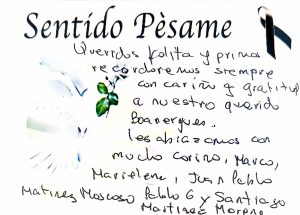 Sentido Pèsame
Queridos Lolita y primos
recordaremos siempre
con cariño y gratitud
a nuestro querido
Boanerques.
Les abrazamos con
mucho cariño, Marco,
Marielene, Juan Pablo
Matinez Moscoso Pablo G y Santiago
Martinez Moreno